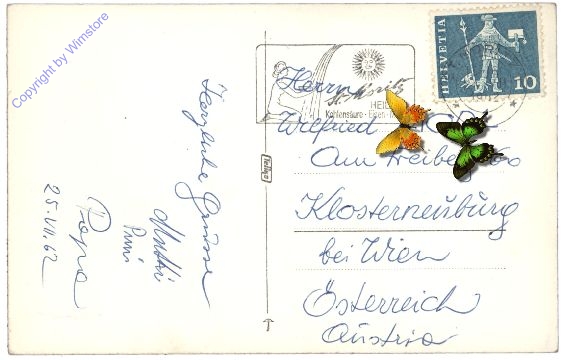 Copyright by Wimstore
Herzliche Grüsse
Mutti
Papa
25.VII.62
HELVETIA
10
St. Moritz
HEIL
Kohlensäure - Eisen -
Herrn
Wilfried
Am
Klosterneuburg
bei Wien
Österreich
Austria